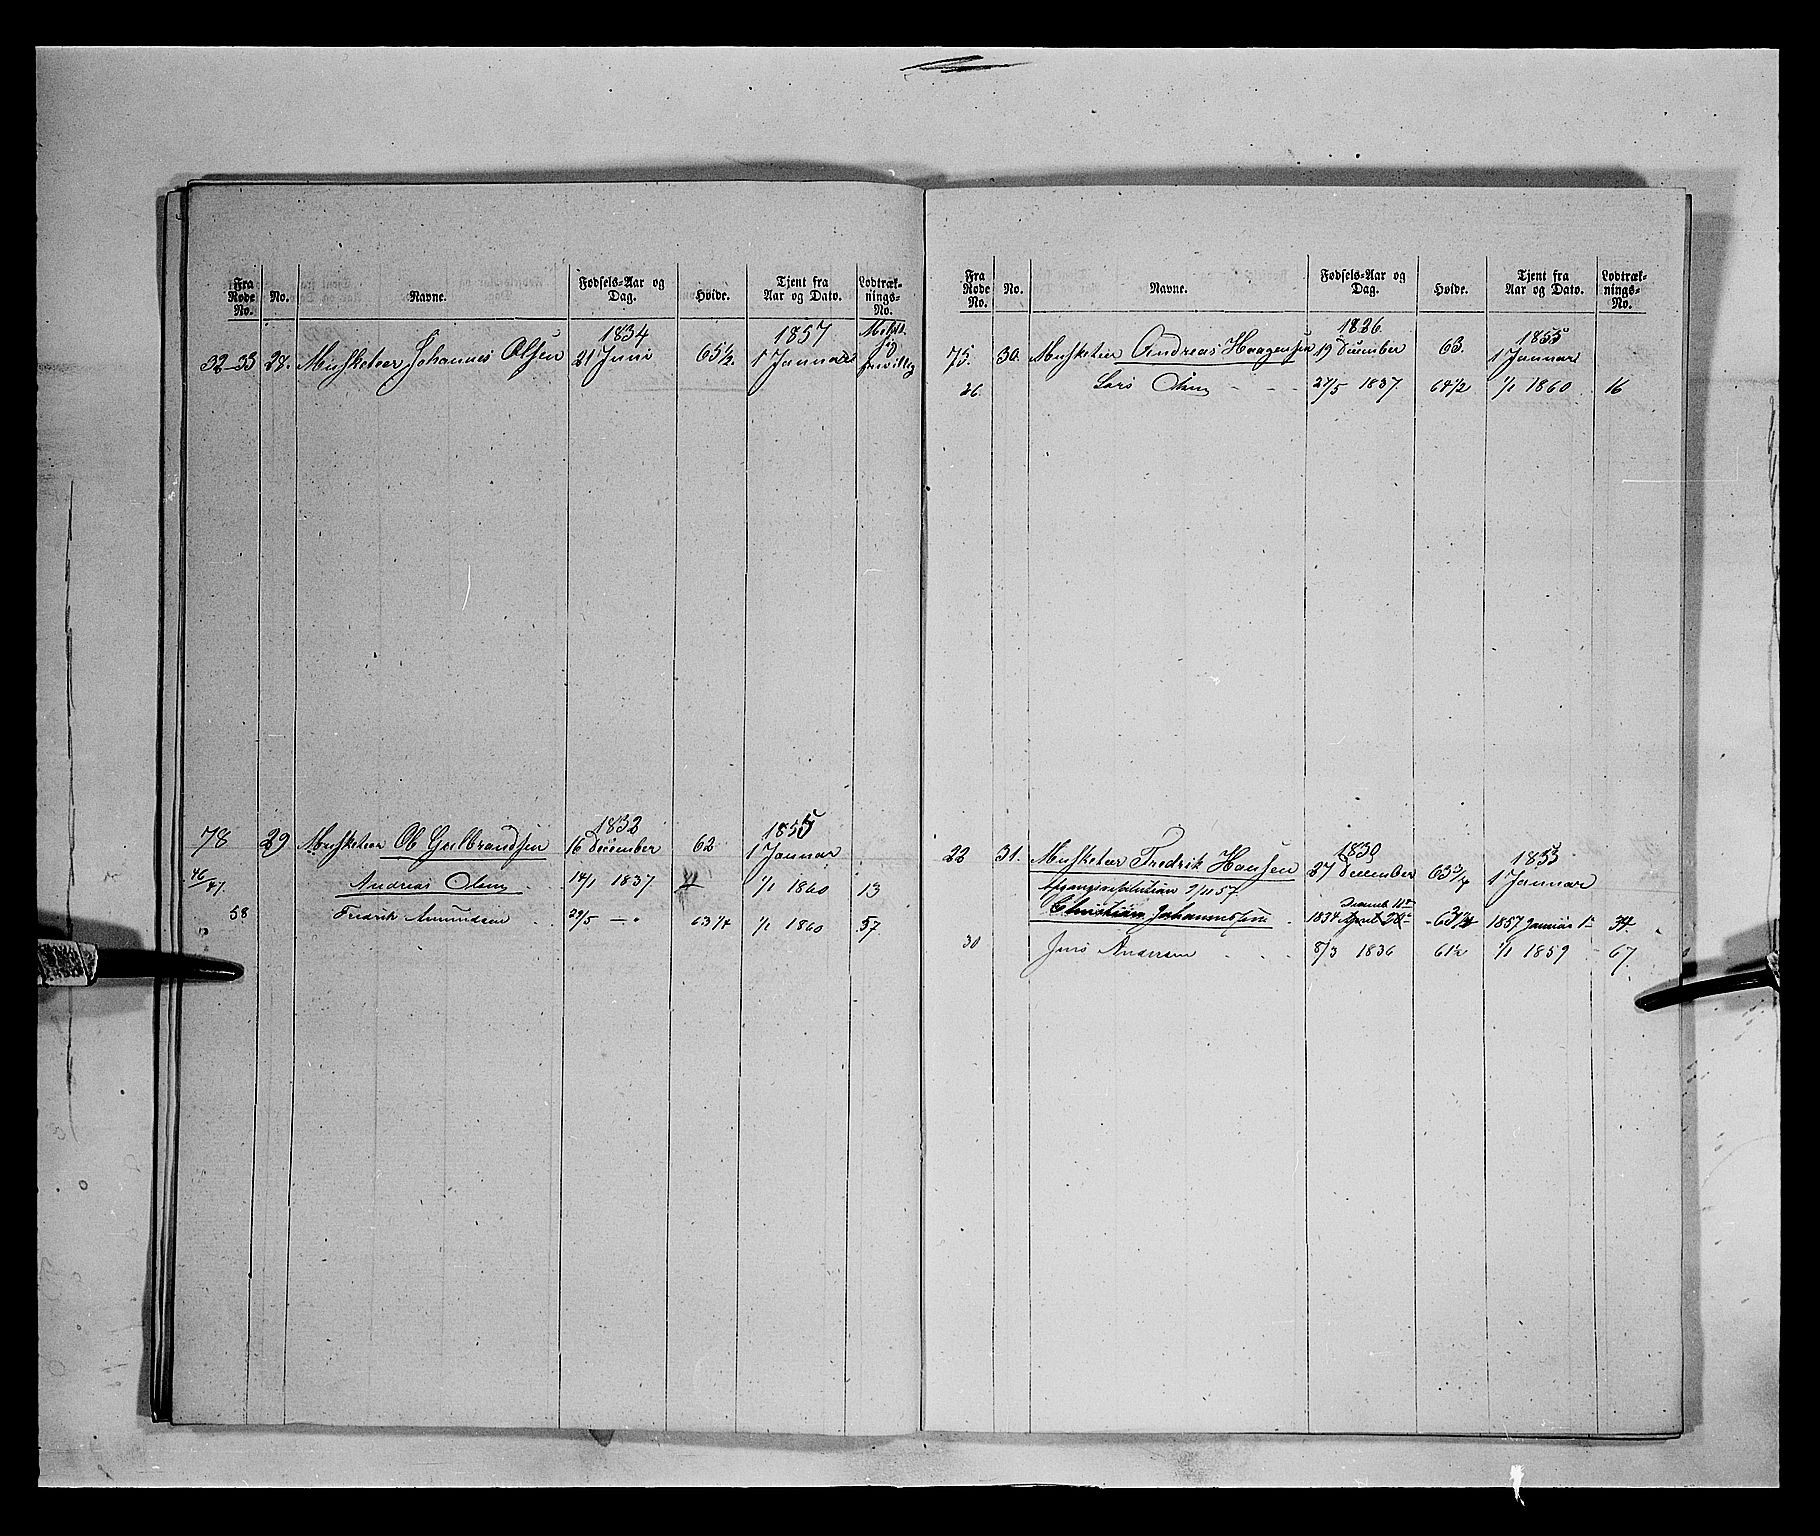 Fra Rode No. No. Navne. Fødsels-Aar og Dag. Høide. Tjent fra Aar og Dato. Lodtræk-nings-No.
1834 1857
32-33 28. Musketeer Johannes Olsen 21 Juni 65½. 1 Januar frivillig
1832 1855
78 29 Musketeer Ol Gulbrandsen 16 December 62 1 Januar
46/47 Andreas Olsen 14/1 1837 1/1 1860 13
58 Fredrik Amundsen 29/5 —"— 63 1/4 1/1 1860 57
Fra Rode No. No. Navne. Fødsels-Aar og Dag. Høide. Tjent fra Aar og Dato. Lodtræk-nings-No.
1826 1855
75. 30. Musketeer Andreas Haagensen 19 December 63. 1 Januar
26. Lars Olsen 27/5 1837. 64½ 1/1 1860 16
1830 1855
22 31. Musketeer Fredrik Hansen 27 December 63¾ 1 Januar
Afgangsresolution 9/11 57
Christian Johannessen 1834 April 63½ 1857 Januar 1 34
30 Jens Andersen 8/3 1836 61½ 1/1 1859 67